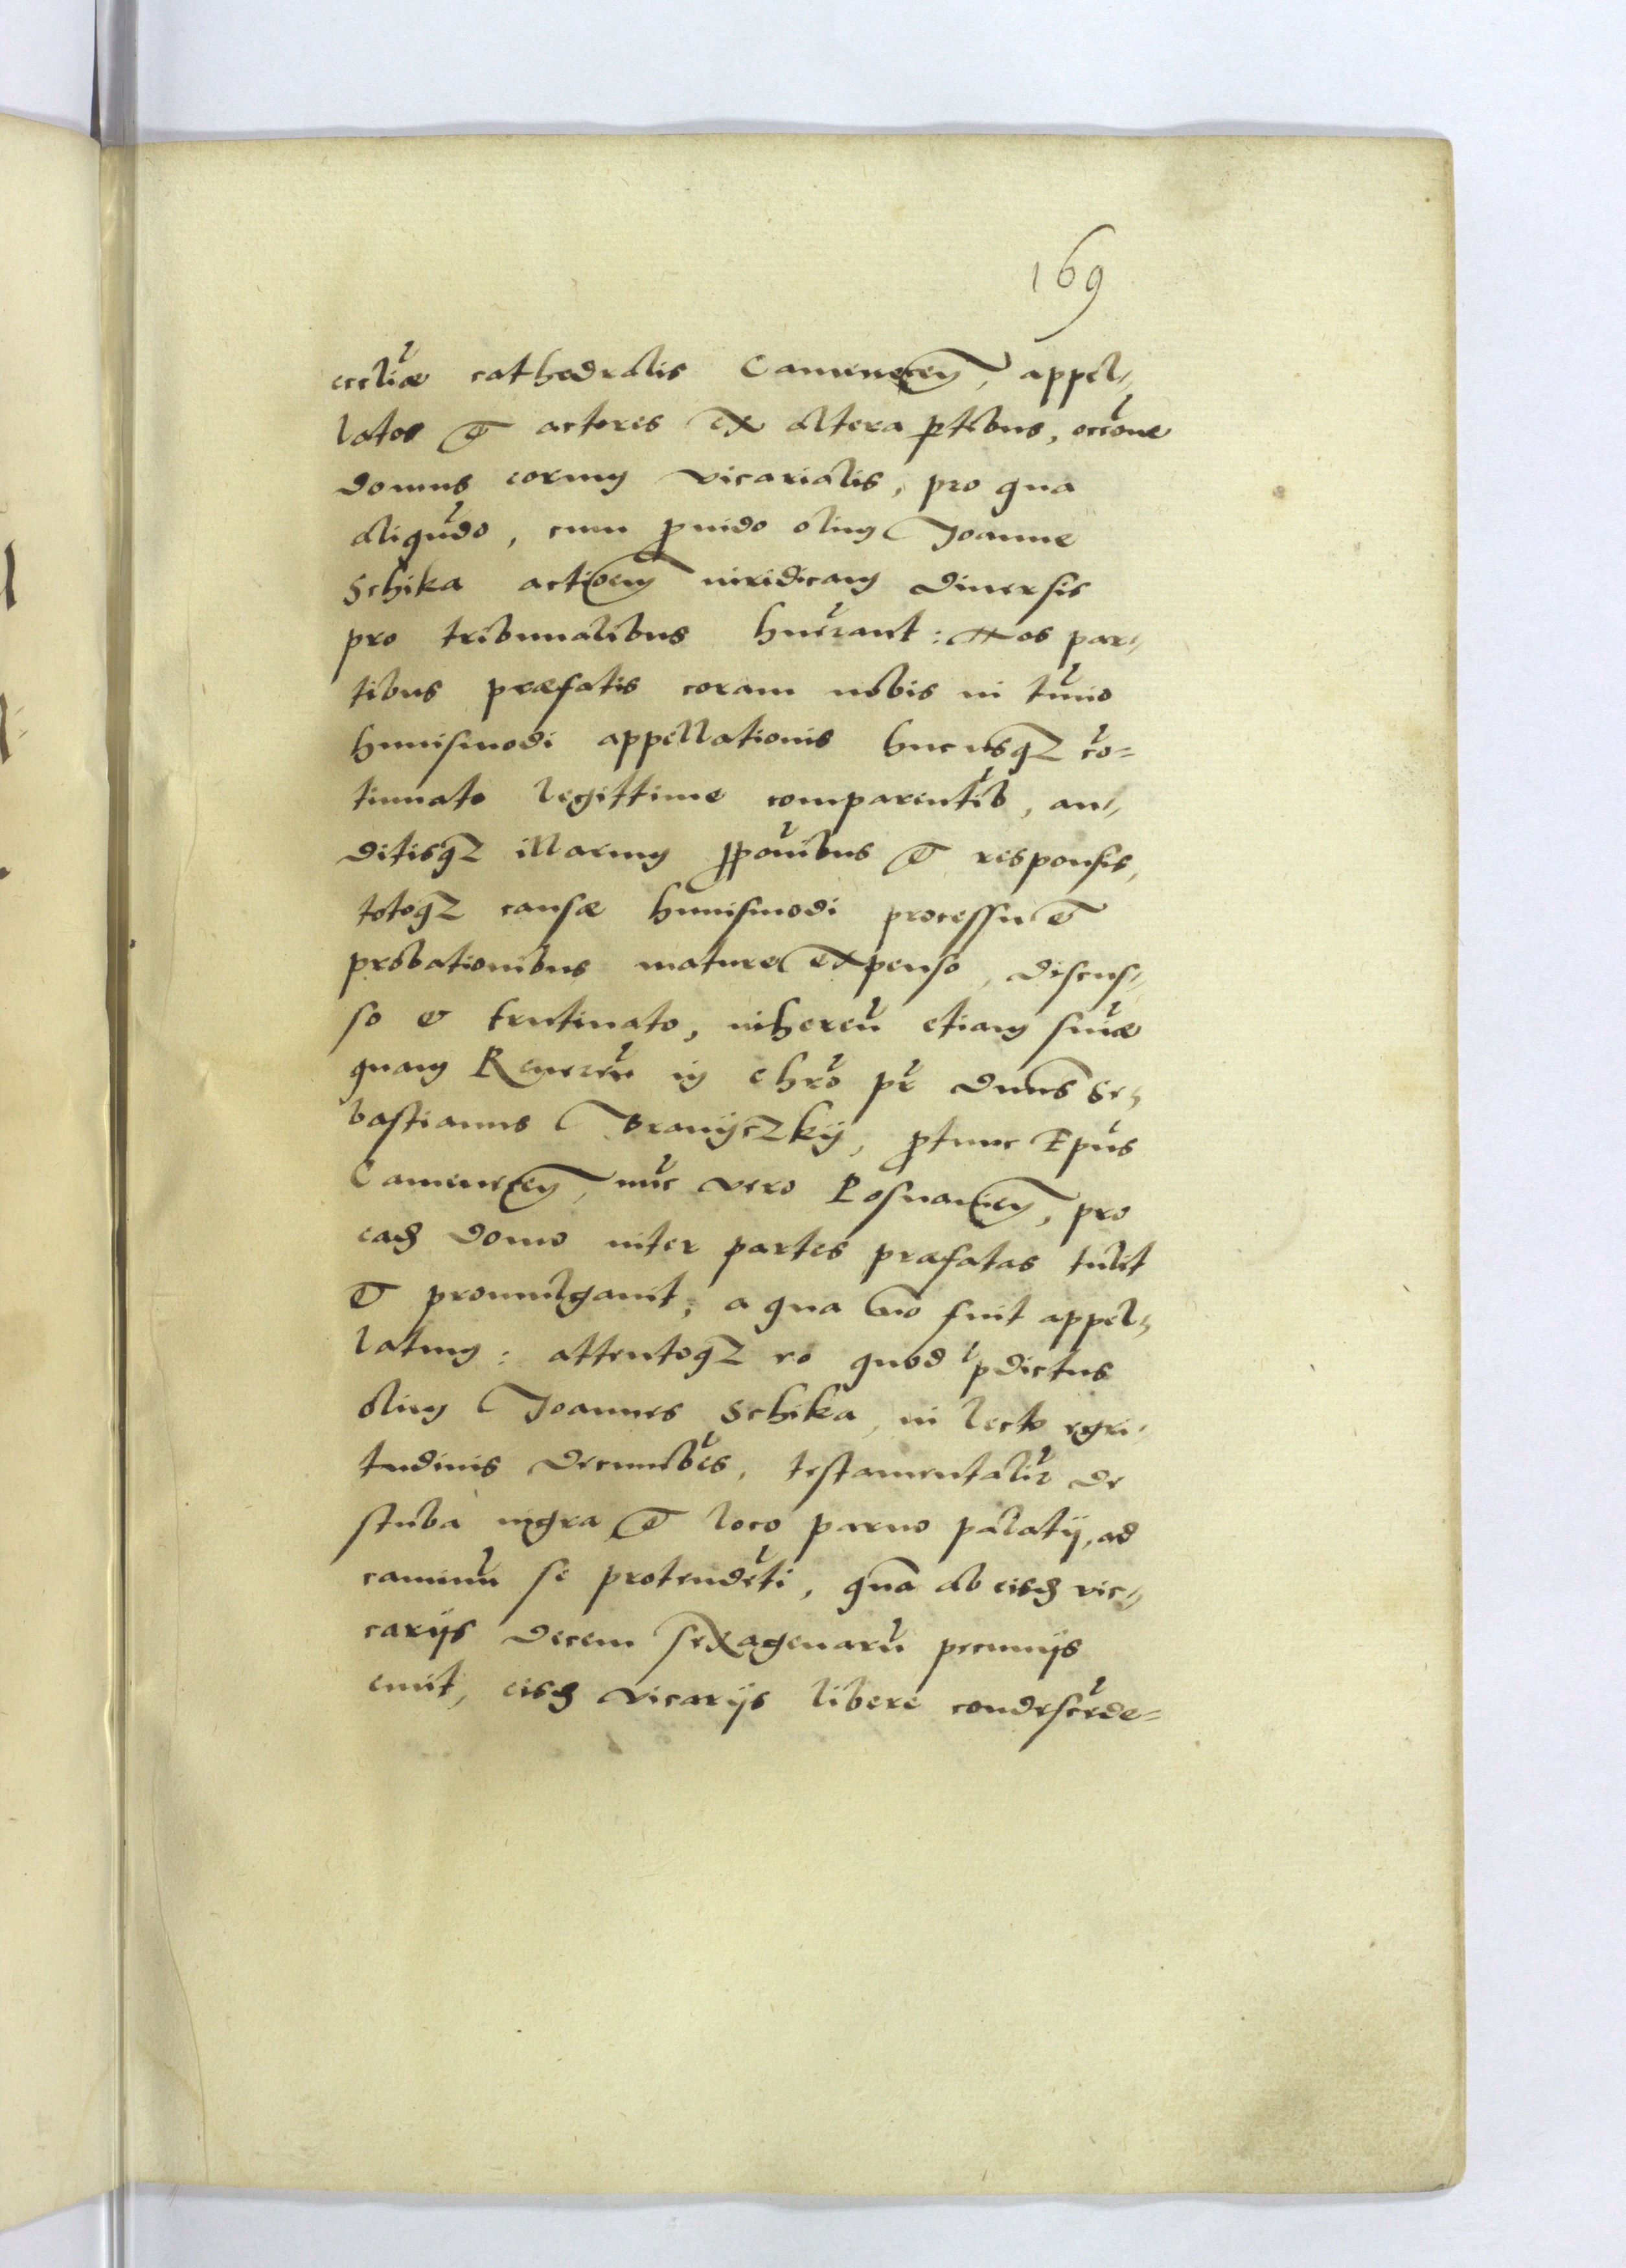 169
eccliæ cathedralis Camenecen̄, appel⸗
latos et actores ex altera ꝑtibus, occōne
domus eorum vicarialis, pro qua
aliqūdo, cum ꝓuido olim Joanne
Schika actioem iuridicam diuersis
pro tribunalibus hūerant: Nos par⸗
tibus præfatis coram nobis in tm̄io
huiusmodi appellationis hucusqꝫ cō⸗
tinuato legittime comparentib̄, au⸗
ditisqꝫ illarum ꝓpōnibus et responsis,
totoqꝫ causæ huiusmodi processu et
probationibus mature expenso, discus⸗
so et trutinato, inhereñ etiam sn̄iæ
quam Reuereñ in chrō pr̄ dn̄us Se⸗
bastianus Branijczkij, ꝓtunc Ep̄us
Camenecen̄, nūc vero Posnanien̄, pro
eadē domo inter partes præfatas tulit
et promulgauit, a qua nō fuit appel⸗
latum: attentoqꝫ eo quod p̄dictus
olim Joannes Schika, in lecto egri⸗
tudinis decumbēs, testamentalit̄ de
stuba nigra et loco paruo palatij, ad
caminū se protendēti, qn̄a ab eisdē vic⸗
carijs decem sexagenarū pecunijs
emit, eisdē vicarijs libere condescēde⸗